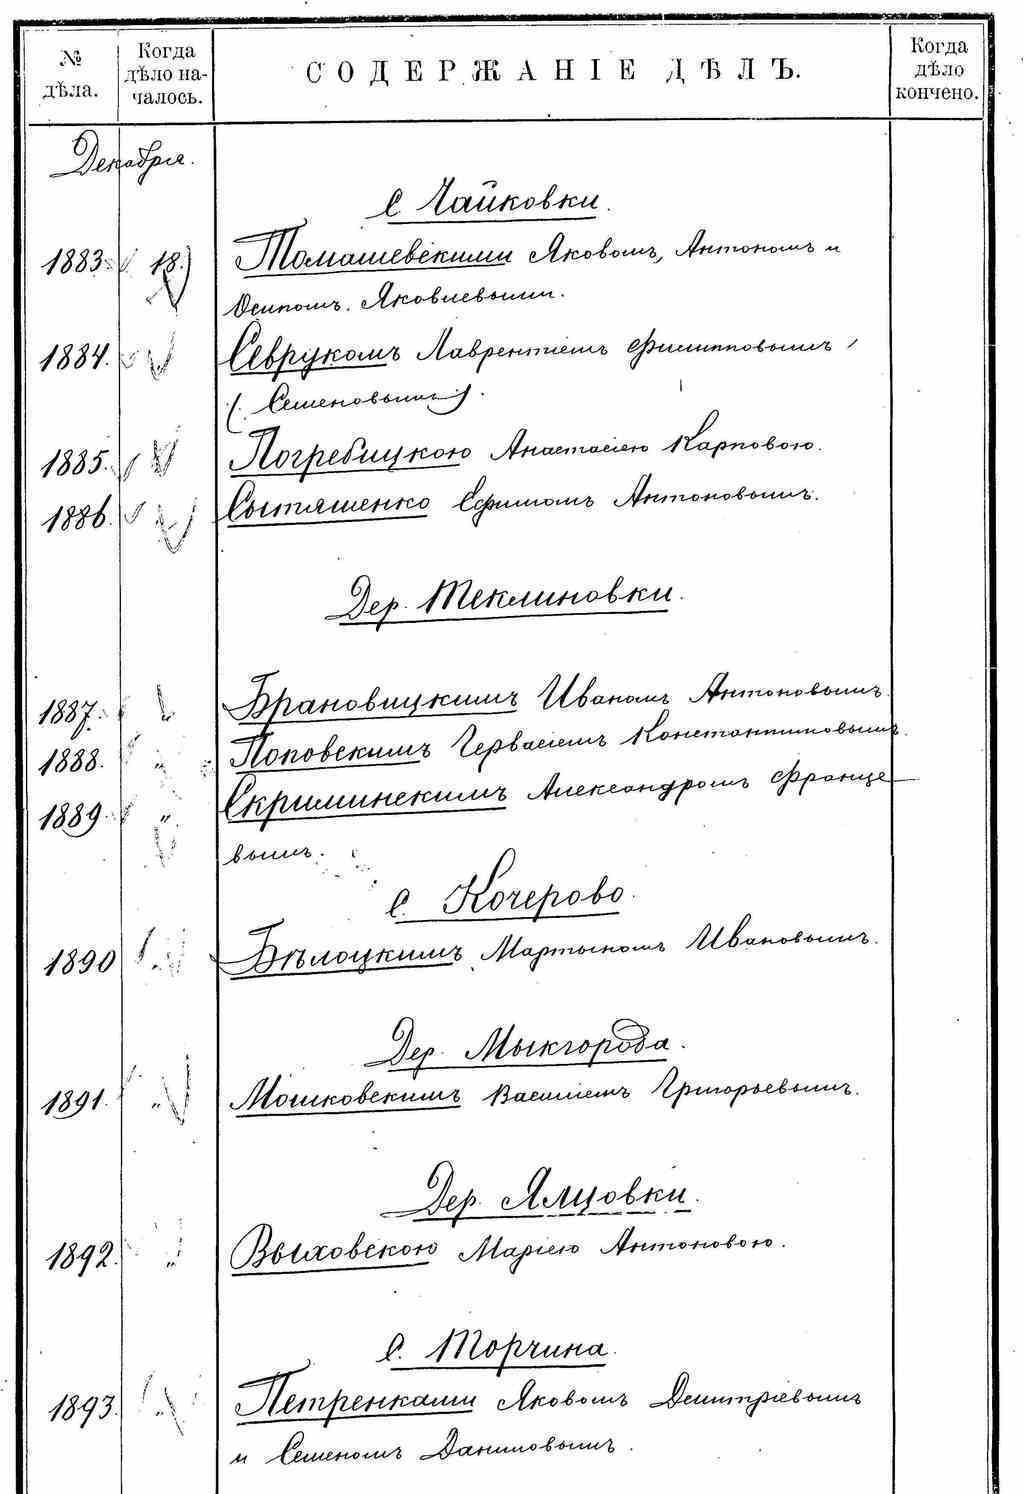 № дѣла.
Когда дѣло началось.
СОДЕРЖАНІЕ ДѢЛЪ.
Когда дѣло кончено.
Декабря.
с. Чайковки.
1883 18. Томашевскими Яковомъ, Антономъ и
Осипомъ Яковлевыми.
1884. Севрукомъ Лаврентіемъ Филипповымъ
(Семеновымъ).
1885. Погребицкою Анастасіею Карповою.
1886. Сытяшенко Ефимомъ Антоновымъ.
Дер. Теклиновки.
1887. Брановицкимъ Иваномъ Антоновымъ.
1888. " Поповскимъ Гервасіемъ Константиновымъ.
1889 " Скриминскимъ Александромъ Францевымъ.
с. Кочерово.
1890 " Бѣлоцкимъ Мартыномъ Ивановымъ.
Дер. Мыкгорода.
1891. " Мошковскимъ Василіемъ Григорьевымъ.
Дер. Ялцовки.
1892. " Выховскою Маріею Антоновою.
с. Торчина.
1893. " Петренками Яковомъ Дмитріевымъ
и Семеномъ Даниловымъ.